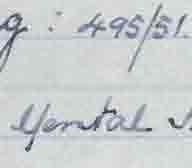 g : 495/51.
Mental